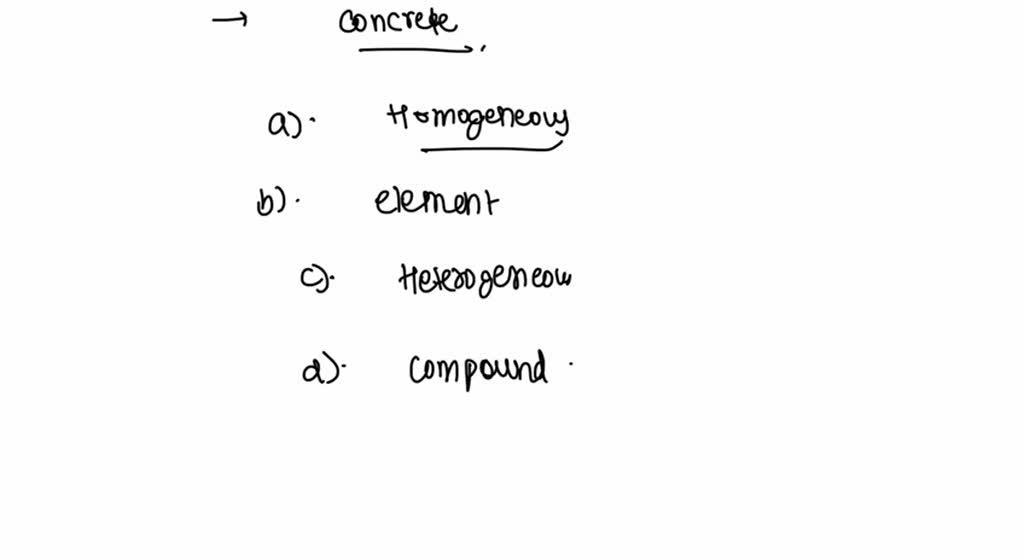 → concrete
a). Homogeneous
b). element
c). Heterogeneous
d). compound.